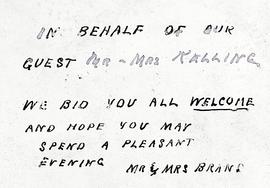 IN BEHALF OF OUR
GUEST MR - MRS KALLING
WE BID YOU ALL WELCOME
AND HOPE YOU MAY
SPEND A PLEASANT
EVENING MR & MRS BRANS